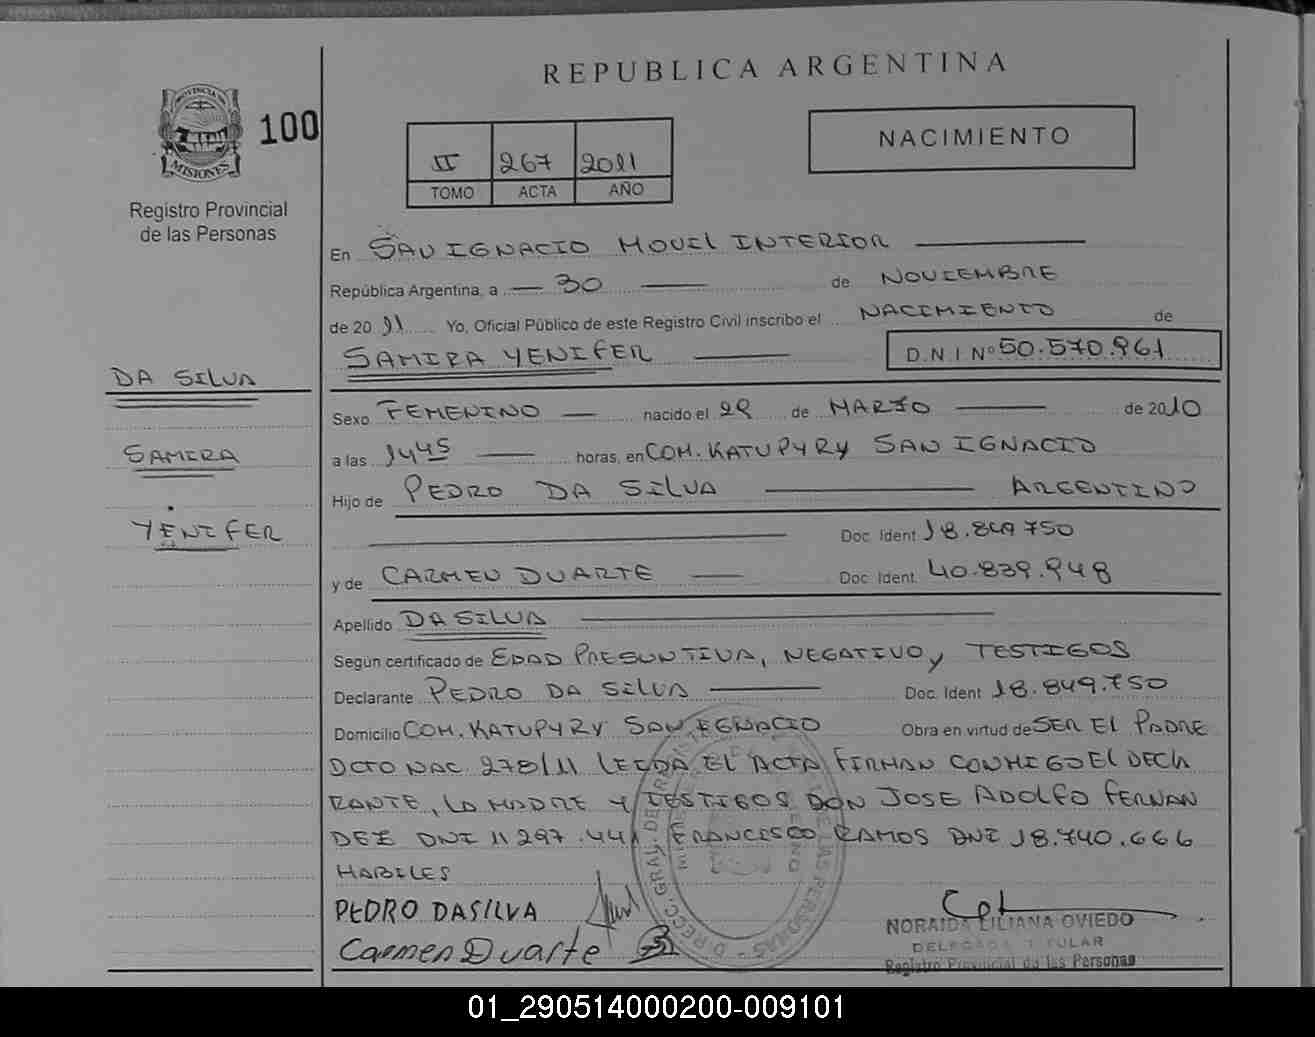 REPUBLICA ARGENTINA
PROVINCIA DE
MISIONES
100
Registro Provincial
de las Personas
II 267 2011
TOMO ACTA AÑO
NACIMIENTO
En SAN IGNACIO MOVIL INTERIOR
República Argentina, a 30 de NOVIEMBRE
de 2011 Yo, Oficial Público de este Registro Civil inscribo el NACIMIENTO de
SAMIRA YENIFER D.N.I Nº 50.570.961
DA SILVA
SAMIRA
YENIFER
Sexo FEMENINO nacido el 29 de MARZO de 2010
a las 1445 horas, en COM. KATUPYRY SAN IGNACIO
Hijo de PEDRO DA SILVA ARGENTINO
Doc. Ident 18.849.750
y de CARMEN DUARTE Doc. Ident. 40.839.948
Apellido DA SILVA
Según certificado de EDAD PRESUNTIVA, NEGATIVO y TESTIGOS
Declarante PEDRO DA SILVA Doc. Ident 18.849.750
Domicilio COM. KATUPYRY SAN IGNACIO Obra en virtud de SER EL PADRE
DCTO NAC. 278/11 LEIDA EL ACTA FIRMAN CONMIGO EL DECLA
RANTE, LA MADRE Y TESTIGOS DON JOSE ADOLFO FERNAN
DEZ DNI 11 297.441 FRANCISCO RAMOS DNI 18.740.666
HABILES
PEDRO DASILVA
Carmen Duarte
NORAIDA LILIANA OVIEDO
DELEGADA TITULAR
Registro Provincial de las Personas
01_290514000200-009101